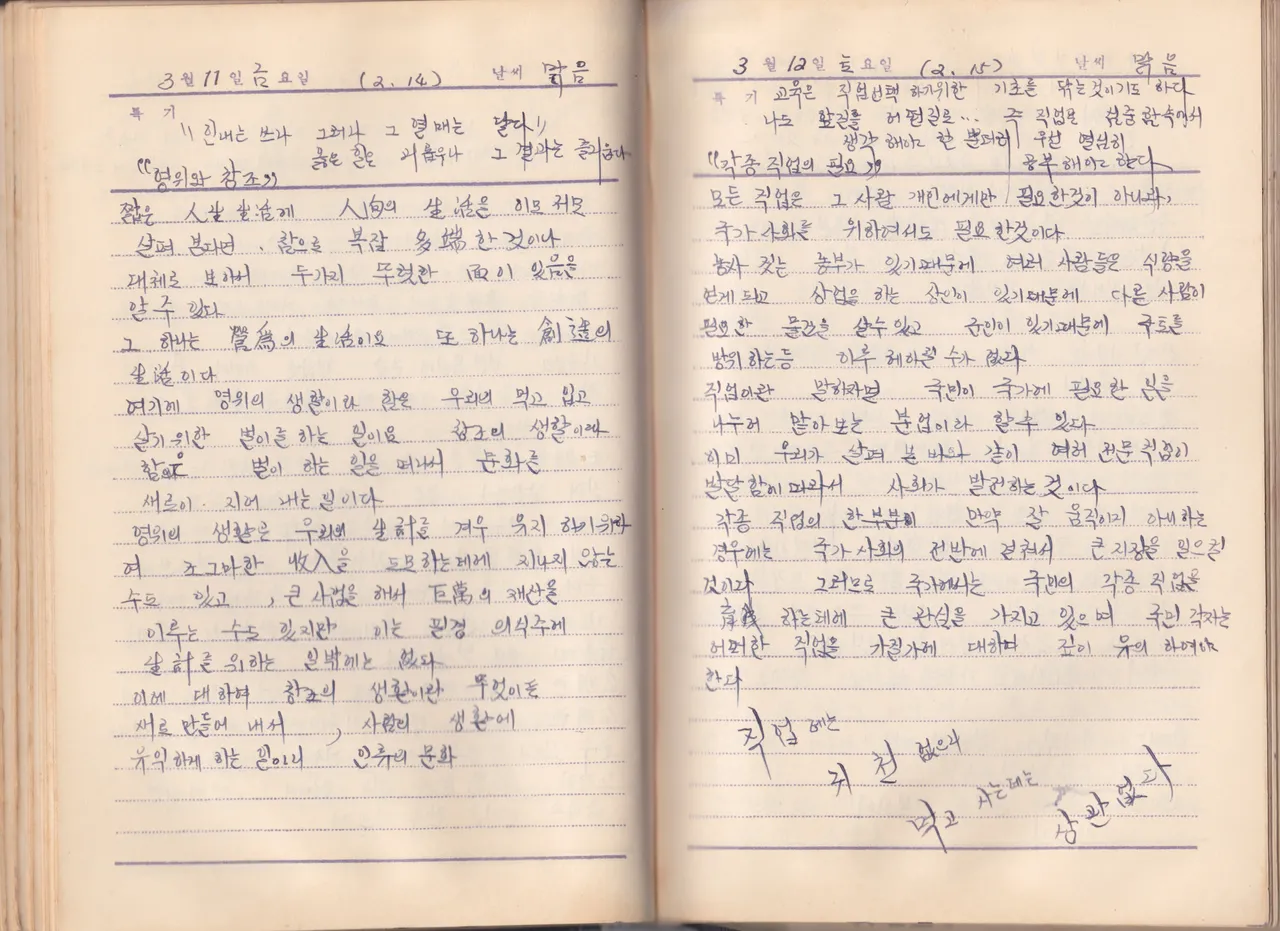 3월 11일 금요일 (2. 14) 날씨 맑음
특기
"인내는 쓰다 그러나 그 열매는 달다"
옳은 일은 괴로우나 그 결과는 즐거웁다
"영위와 창조"
짧은 人生 生活에 人間의 生活은 이모저모
살펴 본다면. 참으로 복잡 多端한 것이나
대체로 보아서 두가지 뚜렷한 面이 있음을
알 수 있다
그 하나는 營爲의 生活이요 또 하나는 創造의
生活이다
여기에 영위의 생활이라 함은 우리의 먹고 입고
살기 위한 벌이를 하는 일이요 창조의 생활이라
함은 벌이 하는 일을 떠나서 문화를
새로이. 지어 내는 일이다
영위의 생활은 우리의 生計를 겨우 유지 하기위하
여 조그마한 收入을 도모하는데에 지나지 않는
수도 있고, 큰 사업을 해서 巨萬의 재산을
이루는 수도 있지만 이는 필경 의식주에
生計를 위하는 일밖에는 없다
이에 대하여 창조의 생활이란 무엇이든
새로 만들어 내서, 사람의 생활에
유익하게 하는 일이니 인류의 문화
3월 12일 토요일 (2. 15) 날씨 맑음
특기 교육은 직업선택 하기위한 기초를 닦는것이기도 하다
나도 앞길를 어떤길로... 주 직업은
생각 해야 한 뿐더러 우선 열심히
"각종 직업의 필요" 공부해야 한다
모든 직업은 그 사람 개인에게만 필요한것이 아니라,
국가 사회를 위하여서도 필요한것이다
농사 짓는 농부가 있기때문에 여러 사람들은 식량을
얻게 되고 상업을 하는 상인이 있기때문에 다른 사람이
필요한 물건을 살수 있고 군인이 있기때문에 국토를
방위하는등 이루 헤아릴 수가 없다
직업이란 말하자면 국민이 국가에 필요한 일을
나누어 맡아보는 분업이라 할수 있다
이미 우리가 살펴 본 바와 같이 여허 전문직업이
발달함에 따라서 사회가 발전하는 것이다
각종 직업의 한부분이 만약 잘 움직이지 아니하는
경우에는 국가 사회의 전반에 걸쳐서 큰 지장을 일으킬
것이다 그러므로 국가에서는 국민의 각종 직업을
育成 하는데에 큰 관심을 가지고 있으며 국민 각자는
어떠한 직업을 가질가에 대하여 깊이 유의 하여야
한다
직업에는
귀천 없으나
먹고 사는데는
상관 없다